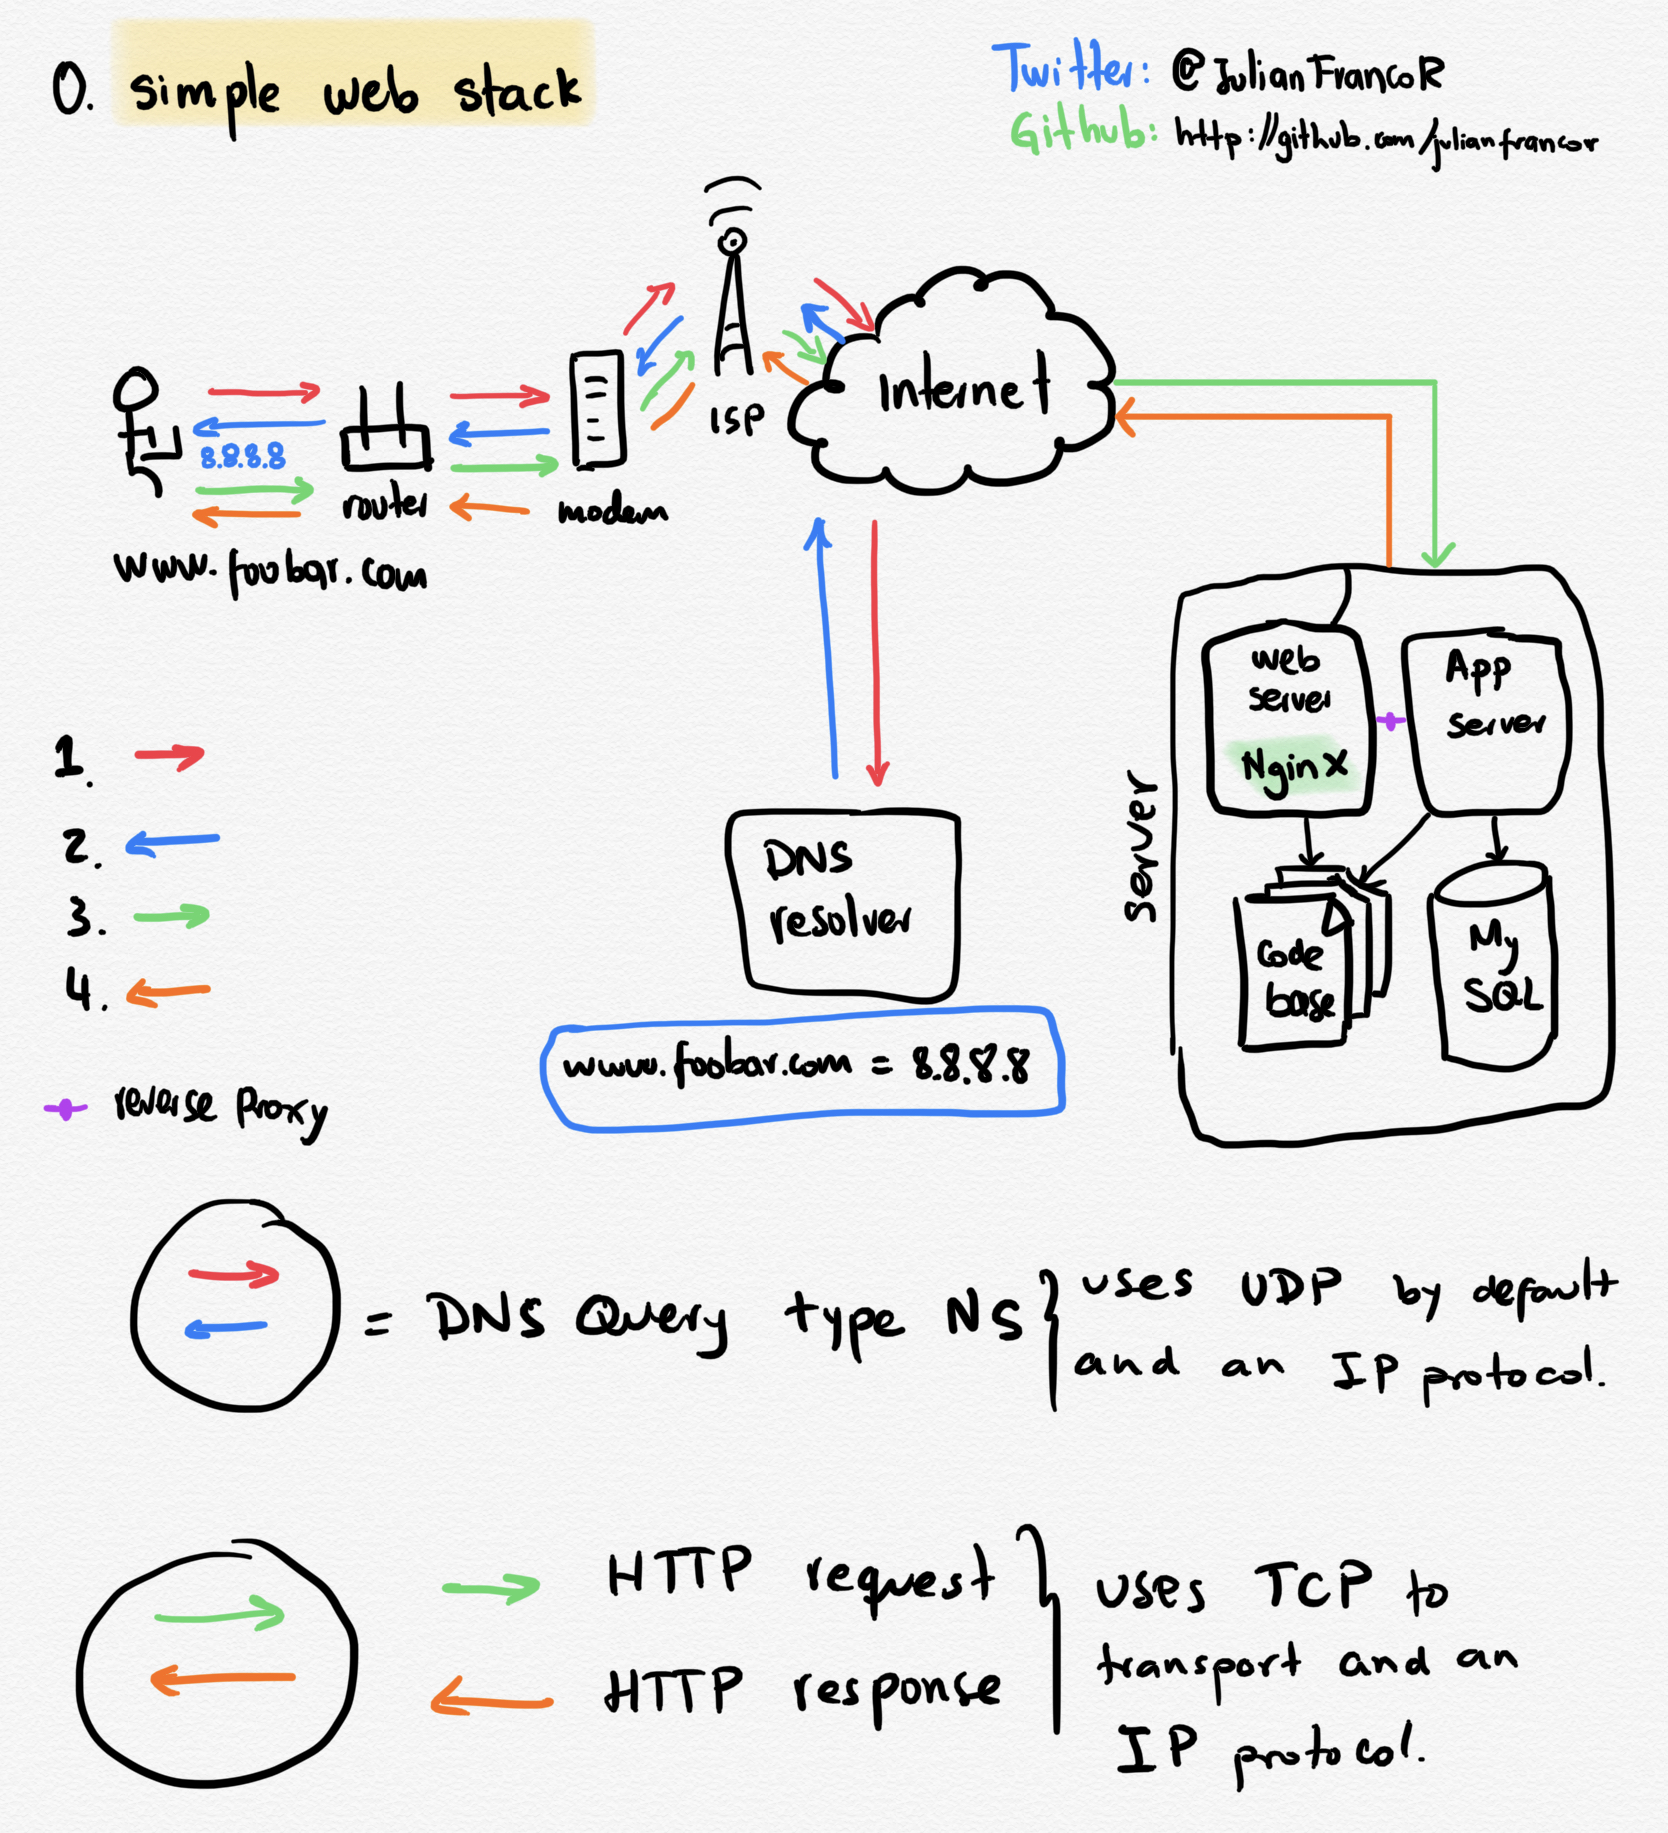 0. simple web stack
Twitter: @JulianFrancoR
Github: http://github.com/julianfrancor
Internet
ISP
8.8.8.8
router
modem
www.foobar.com
web
server
Nginx
App
server
Server
Code
base
My
SQL
DNS
resolver
www.foobar.com = 8.8.8.8
1.
2.
3.
4.
reverse Proxy
= DNS Query type NS
uses UDP by default
and an IP protocol.
HTTP request
HTTP response
uses TCP to
transport and an
IP protocol.